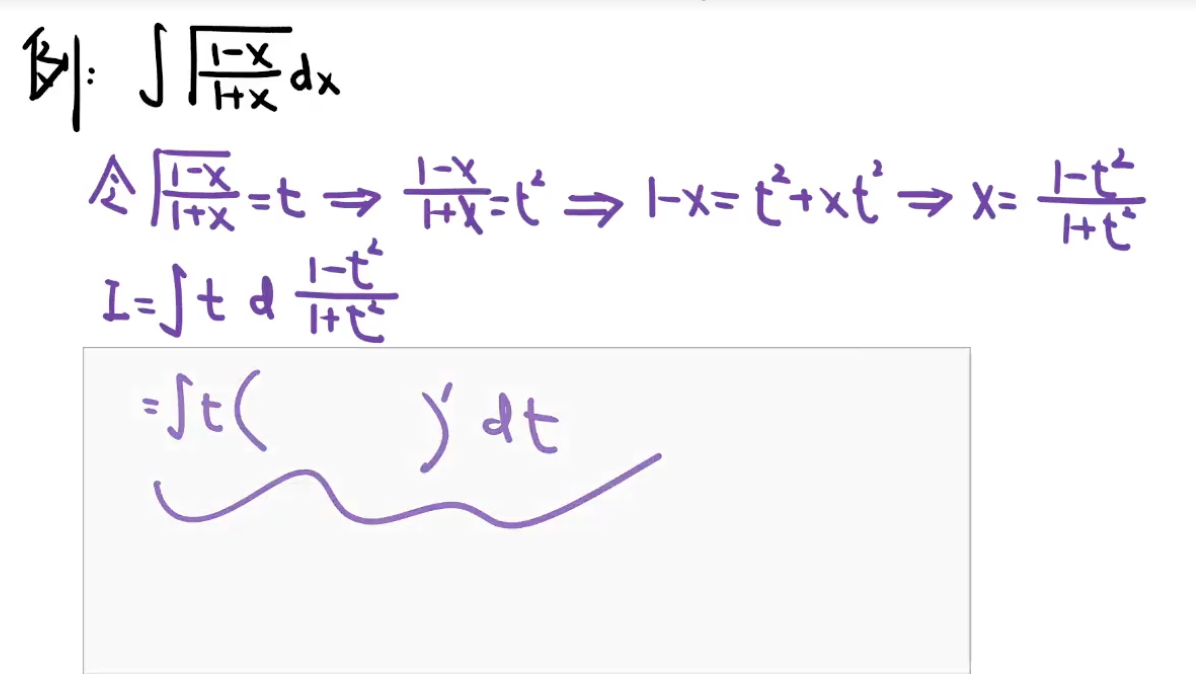 例: ∫√((1-x)/(1+x)) dx
令 √((1-x)/(1+x)) = t ⇒ (1-x)/(1+x) = t² ⇒ 1-x = t²+xt² ⇒ x = (1-t²)/(1+t²)
I = ∫ t d (1-t²)/(1+t²)
= ∫ t (    )' dt